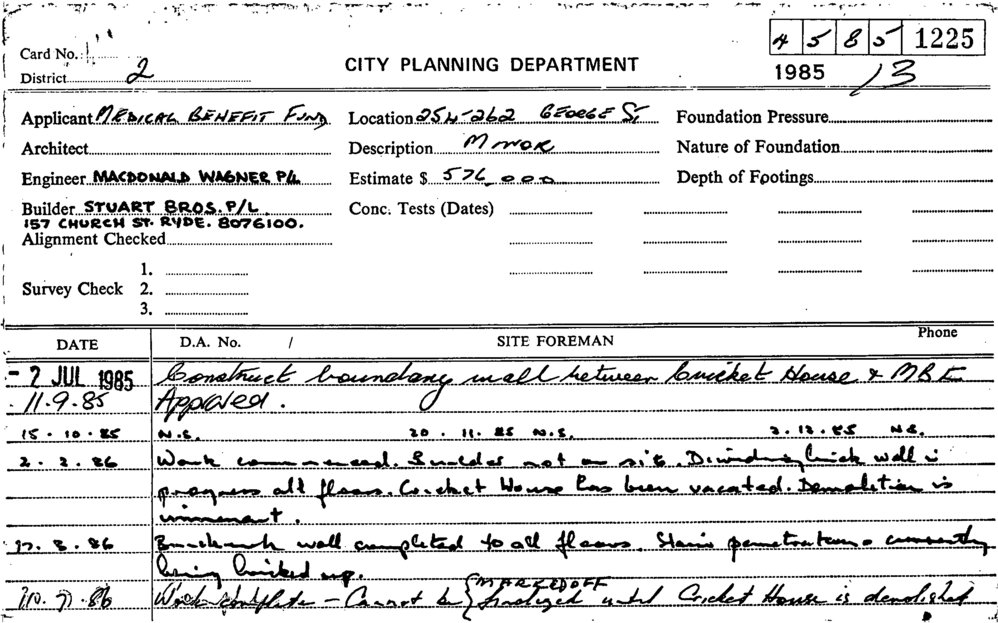 4 5 8 5 1225
Card No. 1
CITY PLANNING DEPARTMENT
1985 / 13
District 2
Applicant MEDICAL BENEFIT FUND Location 254-262 GEORGE ST. Foundation Pressure
Architect Description MINOR Nature of Foundation
Engineer MACDONALD WAGNER P/L Estimate $ 576,000 Depth of Footings
Builder STUART BROS. P/L Conc. Tests (Dates)
157 CHURCH ST. RYDE. 8076100.
Alignment Checked
1.
Survey Check 2.
3.
DATE D.A. No. / SITE FOREMAN Phone
- 2 JUL 1985 Construct boundary wall between Cricket House & MBF
11.9.85 Approved.
15.10.85 N.S. 20.11.85 N.S. 2.12.85 N.S.
2.2.86 Work commenced. Builder not on site. Dividing brick wall i
progress all floors. Cricket House has been vacated. Demolition is
imminent.
8.86 Brickwork wall completed to all floors. Stair penetrations currently
being bricked up.
7.86 Work complete - Cannot be { MARKED OFF
finalized until Cricket House is demolished